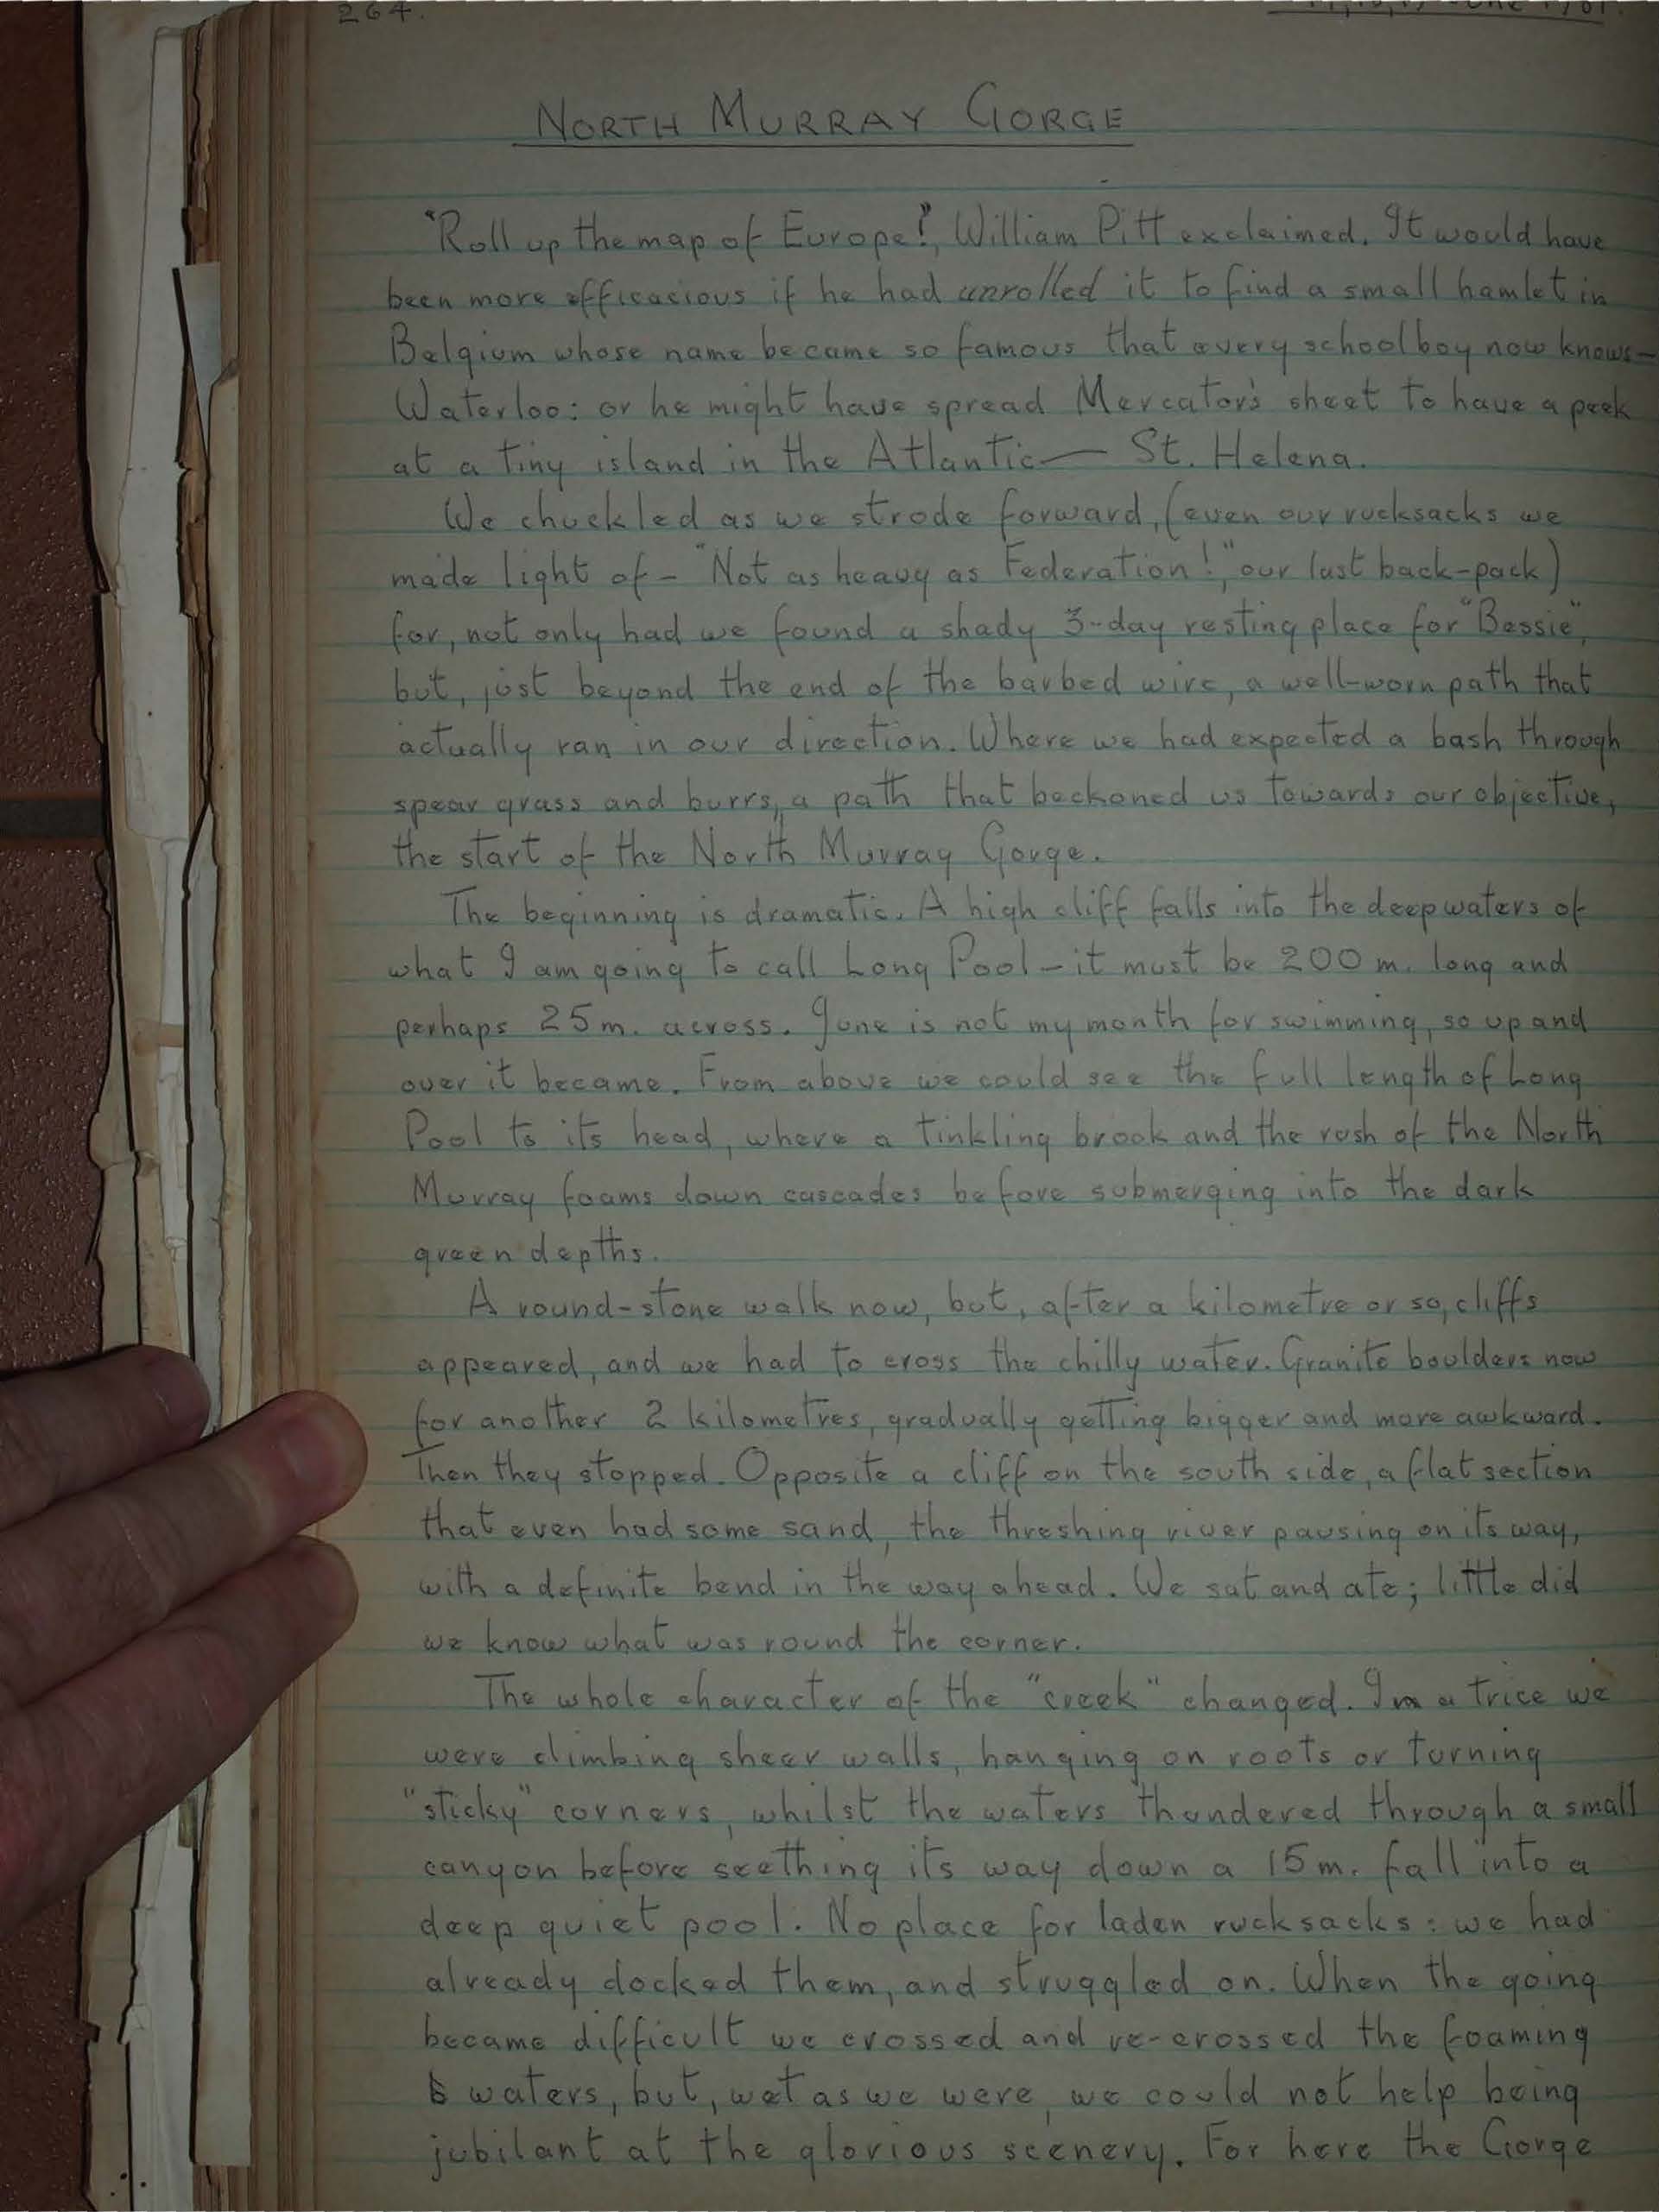 264.
NORTH MURRAY GORGE
"Roll up the map of Europe!", William Pitt exclaimed. It would have
been more efficacious if he had unrolled it to find a small hamlet in
Belgium whose name became so famous that every schoolboy now knows—
Waterloo: or he might have spread Mercator's sheet to have a peek
at a tiny island in the Atlantic — St. Helena.
We chuckled as we strode forward, (even our rucksacks we
made light of - "Not as heavy as Federation!", our last back-pack)
for, not only had we found a shady 3-day resting place for "Bessie",
but, just beyond the end of the barbed wire, a well-worn path that
actually ran in our direction. Where we had expected a bash through
spear grass and burrs, a path that beckoned us towards our objective,
the start of the North Murray Gorge.
The beginning is dramatic. A high cliff falls into the deep waters of
what I am going to call Long Pool - it must be 200 m. long and
perhaps 25 m. across. June is not my month for swimming, so up and
over it became. From above we could see the full length of Long
Pool to its head, where a tinkling brook and the rush of the North
Murray foams down cascades before submerging into the dark
green depths.
A round-stone walk now, but, after a kilometre or so, cliffs
appeared, and we had to cross the chilly water. Granite boulders now
for another 2 kilometres, gradually getting bigger and more awkward.
Then they stopped. Opposite a cliff on the south side, a flat section
that even had some sand, the threshing river pausing on its way,
with a definite bend in the way ahead. We sat and ate; little did
we know what was round the corner.
The whole character of the "creek" changed. In a trice we
were climbing sheer walls, hanging on roots or turning
"sticky" corners, whilst the waters thundered through a small
canyon before seething its way down a 15 m. fall into a
deep quiet pool. No place for laden rucksacks: we had
already docked them, and struggled on. When the going
became difficult we crossed and re-crossed the foaming
waters, but, wet as we were, we could not help being
jubilant at the glorious scenery. For here the Gorge